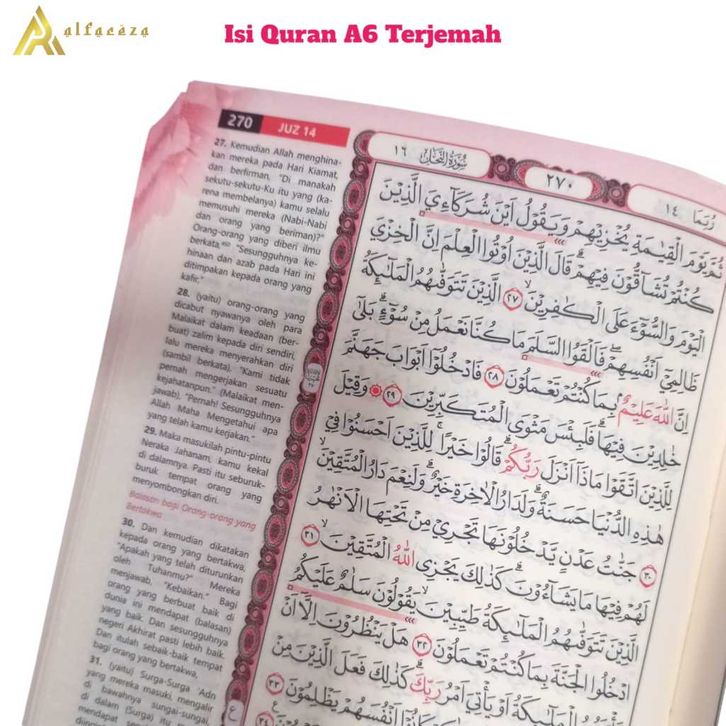 alfacaza
Isi Quran A6 Terjemah
270 JUZ 14
27. Kemudian Allah menghina-
kan mereka pada Hari Kiamat,
dan berfirman, "Di manakah
sekutu-sekutu-Ku itu yang (ka-
rena membelanya) kamu selalu
memusuhi mereka (Nabi-Nabi
dan orang yang beriman)?"
Orang-orang yang diberi ilmu
berkata, "Sesungguhnya ke-
hinaan dan azab pada Hari ini
ditimpakan kepada orang yang
kafir."
28. (yaitu) orang-orang yang
dicabut nyawanya oleh para
Malaikat dalam keadaan (ber-
buat) zalim kepada diri sendiri,
lalu mereka menyerahkan diri
(sambil berkata), "Kami tidak
pernah mengerjakan sesuatu
kejahatanpun." (Malaikat men-
jawab), "Pernah! Sesungguhnya
Allah Maha Mengetahui apa
yang telah kamu kerjakan."
29. Maka masukilah pintu-pintu
Neraka Jahanam, kamu kekal
di dalamnya. Pasti itu seburuk-
buruk tempat orang yang
menyombongkan diri.
Balasan bagi Orang-orang yang
Bertakwa
30. Dan kemudian dikatakan
kepada orang yang bertakwa,
"Apakah yang telah diturunkan
oleh Tuhanmu?" Mereka
menjawab, "Kebaikan." Bagi
orang yang berbuat baik di
dunia ini mendapat (balasan)
yang baik. Dan sesungguhnya
negeri Akhirat pasti lebih baik.
Dan itulah sebaik-baik tempat
bagi orang yang bertakwa,
31. (yaitu) Surga-Surga 'Adn
yang mereka masuki, mengalir
di bawahnya sungai-sungai,
di dalam (Surga) itu mereka
mendapat
١٦ سُورَةُ النَّحْل ٢٧٠ رُبَمَا ١٤
ثُمَّ يَوْمَ الْقِيٰمَةِ يُخْزِيْهِمْ وَيَقُوْلُ اَيْنَ شُرَكَاۤءِيَ الَّذِيْنَ
كُنْتُمْ تُشَاۤقُّوْنَ فِيْهِمْ ۗ قَالَ الَّذِيْنَ اُوْتُوا الْعِلْمَ اِنَّ الْخِزْيَ
الْيَوْمَ وَالسُّوْۤءَ عَلَى الْكٰفِرِيْنَۙ ٢٧ الَّذِيْنَ تَتَوَفّٰىهُمُ الْمَلٰۤىِٕكَةُ
ظَالِمِيْٓ اَنْفُسِهِمْ ۖ فَاَلْقَوُا السَّلَمَ مَا كُنَّا نَعْمَلُ مِنْ سُوْۤءٍ ۗ بَلٰٓى
اِنَّ اللّٰهَ عَلِيْمٌۢ بِمَا كُنْتُمْ تَعْمَلُوْنَ ٢٨ فَادْخُلُوْٓا اَبْوَابَ جَهَنَّمَ
خٰلِدِيْنَ فِيْهَا ۗ فَلَبِئْسَ مَثْوَى الْمُتَكَبِّرِيْنَ ٢٩ وَقِيْلَ
لِلَّذِيْنَ اتَّقَوْا مَاذَآ اَنْزَلَ رَبُّكُمْ ۗ قَالُوْا خَيْرًا ۗ لِلَّذِيْنَ اَحْسَنُوْا فِيْ
هٰذِهِ الدُّنْيَا حَسَنَةٌ ۗ وَلَدَارُ الْاٰخِرَةِ خَيْرٌ ۗ وَلَنِعْمَ دَارُ الْمُتَّقِيْنَۙ
٣٠ جَنّٰتُ عَدْنٍ يَّدْخُلُوْنَهَا تَجْرِيْ مِنْ تَحْتِهَا الْاَنْهٰرُ
لَهُمْ فِيْهَا مَا يَشَاۤءُوْنَ ۗ كَذٰلِكَ يَجْزِى اللّٰهُ الْمُتَّقِيْنَۙ ٣١
الَّذِيْنَ تَتَوَفّٰىهُمُ الْمَلٰۤىِٕكَةُ طَيِّبِيْنَ ۙ يَقُوْلُوْنَ سَلٰمٌ عَلَيْكُمُ
ادْخُلُوا الْجَنَّةَ بِمَا كُنْتُمْ تَعْمَلُوْنَ ٣٢ هَلْ يَنْظُرُوْنَ اِلَّآ اَنْ
الْمَلٰۤىِٕكَةُ اَوْ يَأْتِيَ اَمْرُ رَبِّكَ ۗ كَذٰلِكَ فَعَلَ الَّذِيْنَ مِنْ
اَنْفُسَهُمْ يَظْلِمُوْنَ ٣٣